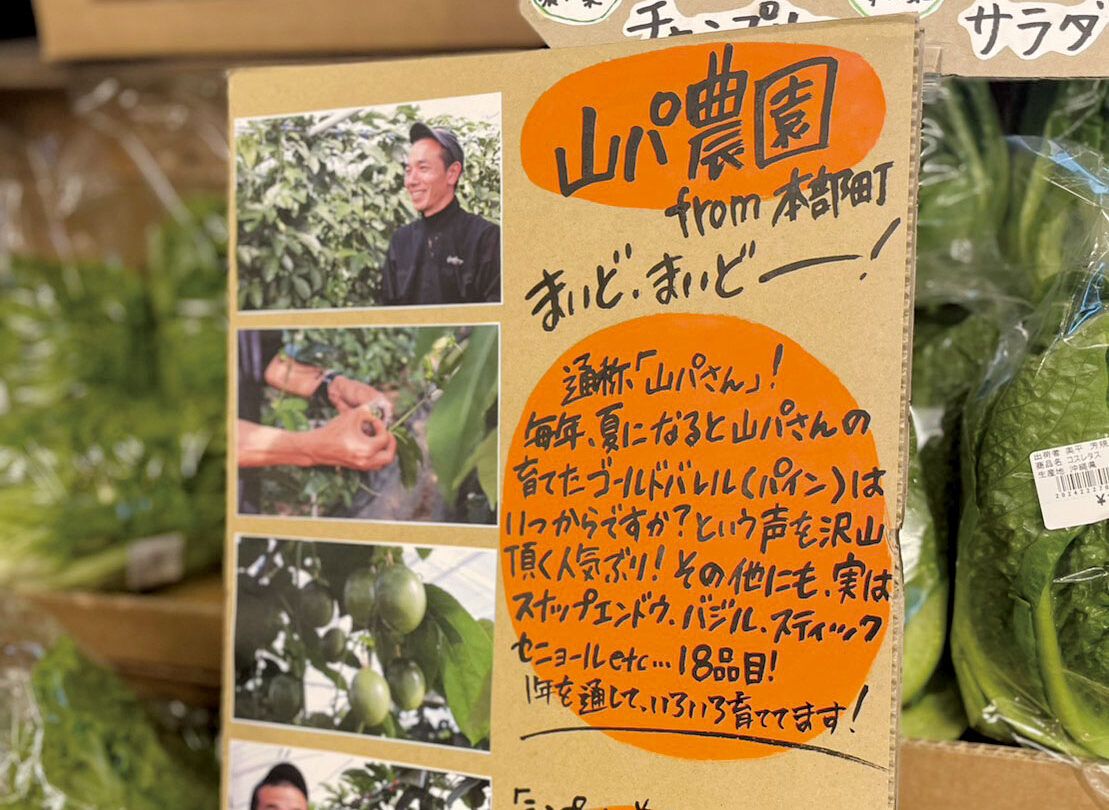 サラダ
山パ農園
from 本部町
まいど、まいどー!
通称「山パさん」!
毎年、夏になると山パさんの
育てたゴールドバレル(パイン)は
いつからですか?という声を沢山
頂く人気ぶり!その他にも、実は
スナップエンドウ、バジル、スティック
セニョールetc…18品目!
1年を通して、いろいろ育ててます!
商品名 コスレタス
生産地 沖縄県